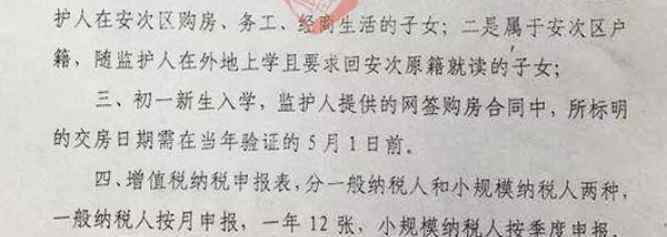 护人在安次区购房、务工、经商生活的子女；二是属于安次区户
籍，随监护人在外地上学且要求回安次原籍就读的子女；
三、初一新生入学，监护人提供的网签购房合同中，所标明
的交房日期需在当年验证的5月1日前。
四、增值税纳税申报表，分一般纳税人和小规模纳税人两种，
一般纳税人按月申报，一年12张，小规模纳税人按季度申报，